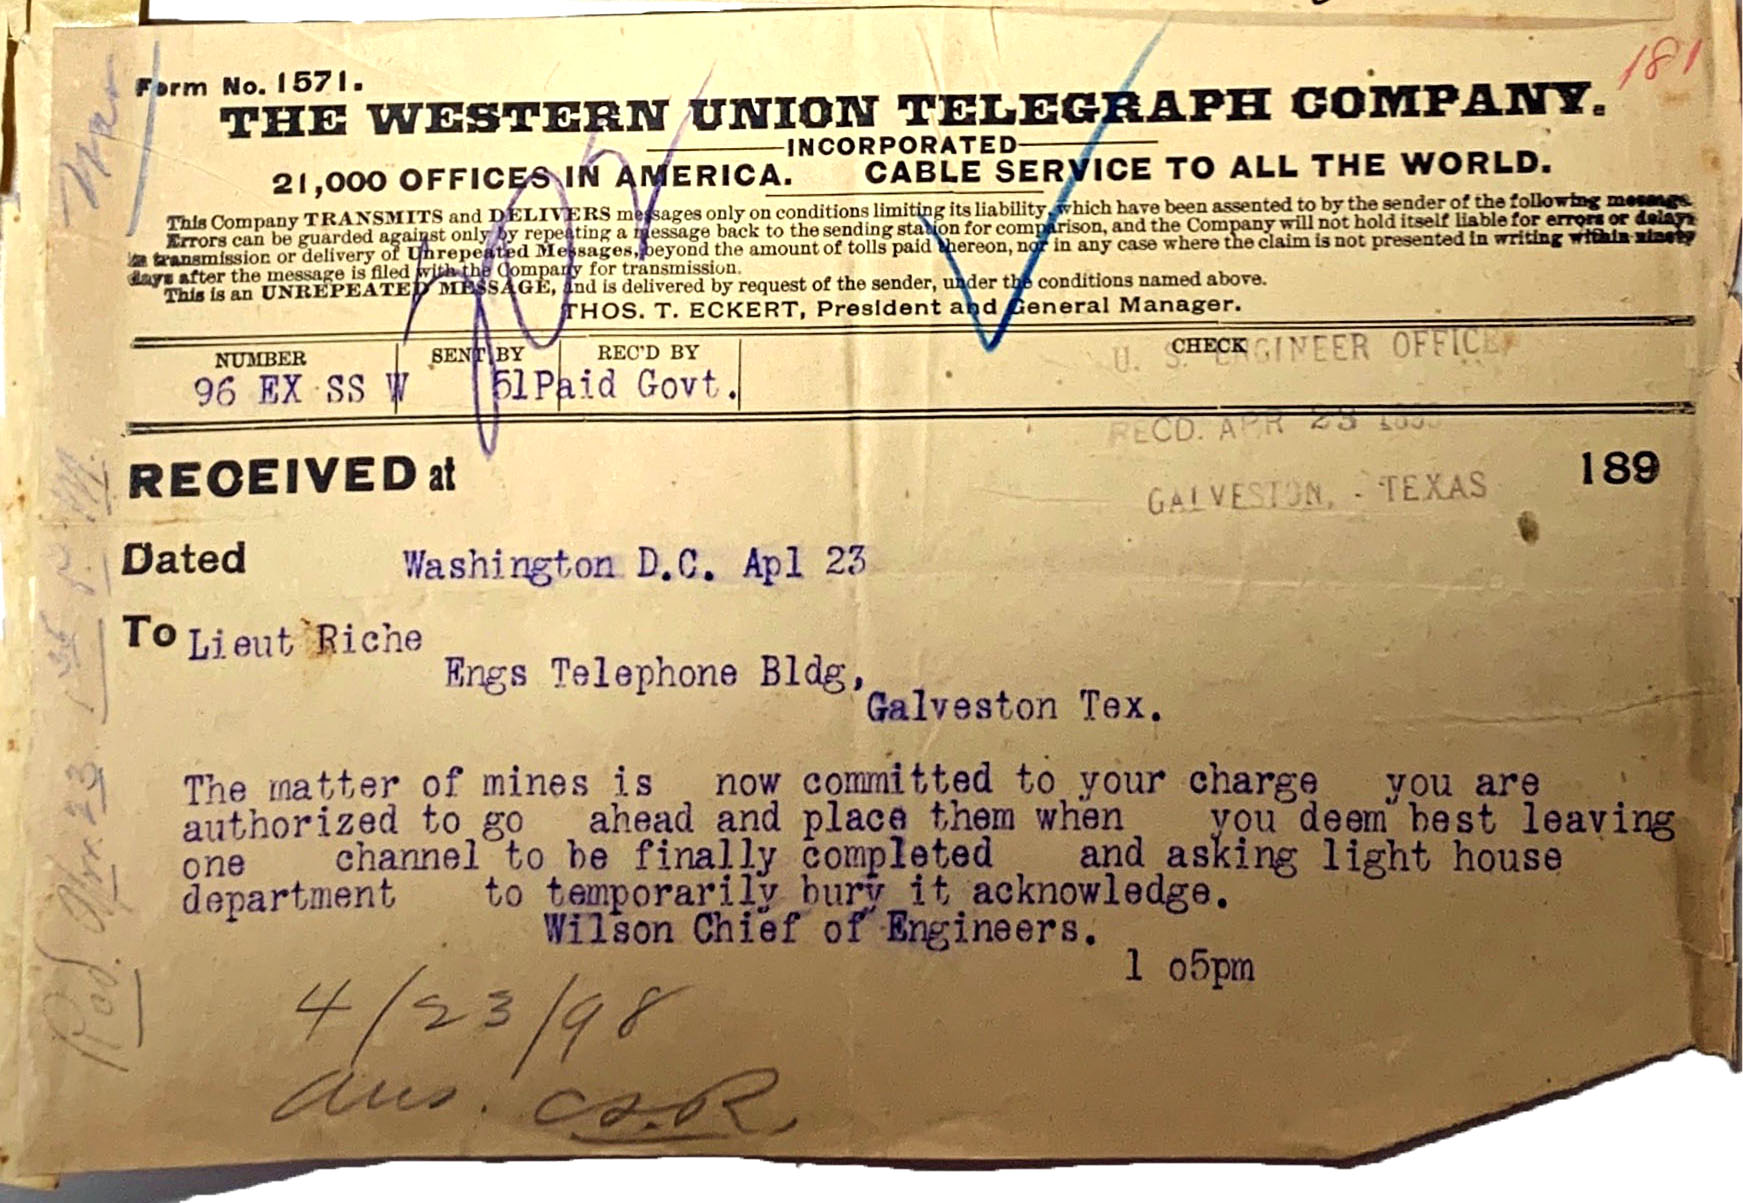 181
Form No. 1571.
THE WESTERN UNION TELEGRAPH COMPANY.
INCORPORATED
21,000 OFFICES IN AMERICA. CABLE SERVICE TO ALL THE WORLD.
This Company TRANSMITS and DELIVERS messages only on conditions limiting its liability, which have been assented to by the sender of the following message.
Errors can be guarded against only by repeating a message back to the sending station for comparison, and the Company will not hold itself liable for errors or delays
in transmission or delivery of Unrepeated Messages, beyond the amount of tolls paid thereon, nor in any case where the claim is not presented in writing within ninety
days after the message is filed with the Company for transmission.
This is an UNREPEATED MESSAGE, and is delivered by request of the sender, under the conditions named above.
THOS. T. ECKERT, President and General Manager.
NUMBER SENT BY REC'D BY CHECK
96 EX SS W 51Paid Govt.
U. S. ENGINEER OFFICE,
RECD. APR 23 189
GALVESTON, - TEXAS
RECEIVED at 189
Dated Washington D.C. Apl 23
To Lieut Riche
Engs Telephone Bldg,
Galveston Tex.
The matter of mines is now committed to your charge you are
authorized to go ahead and place them when you deem best leaving
one channel to be finally completed and asking light house
department to temporarily bury it acknowledge.
Wilson Chief of Engineers.
1 o5pm
4/23/98
Ans. C.S.R.
Rcd. Apr. 23. 1 35 P.M.